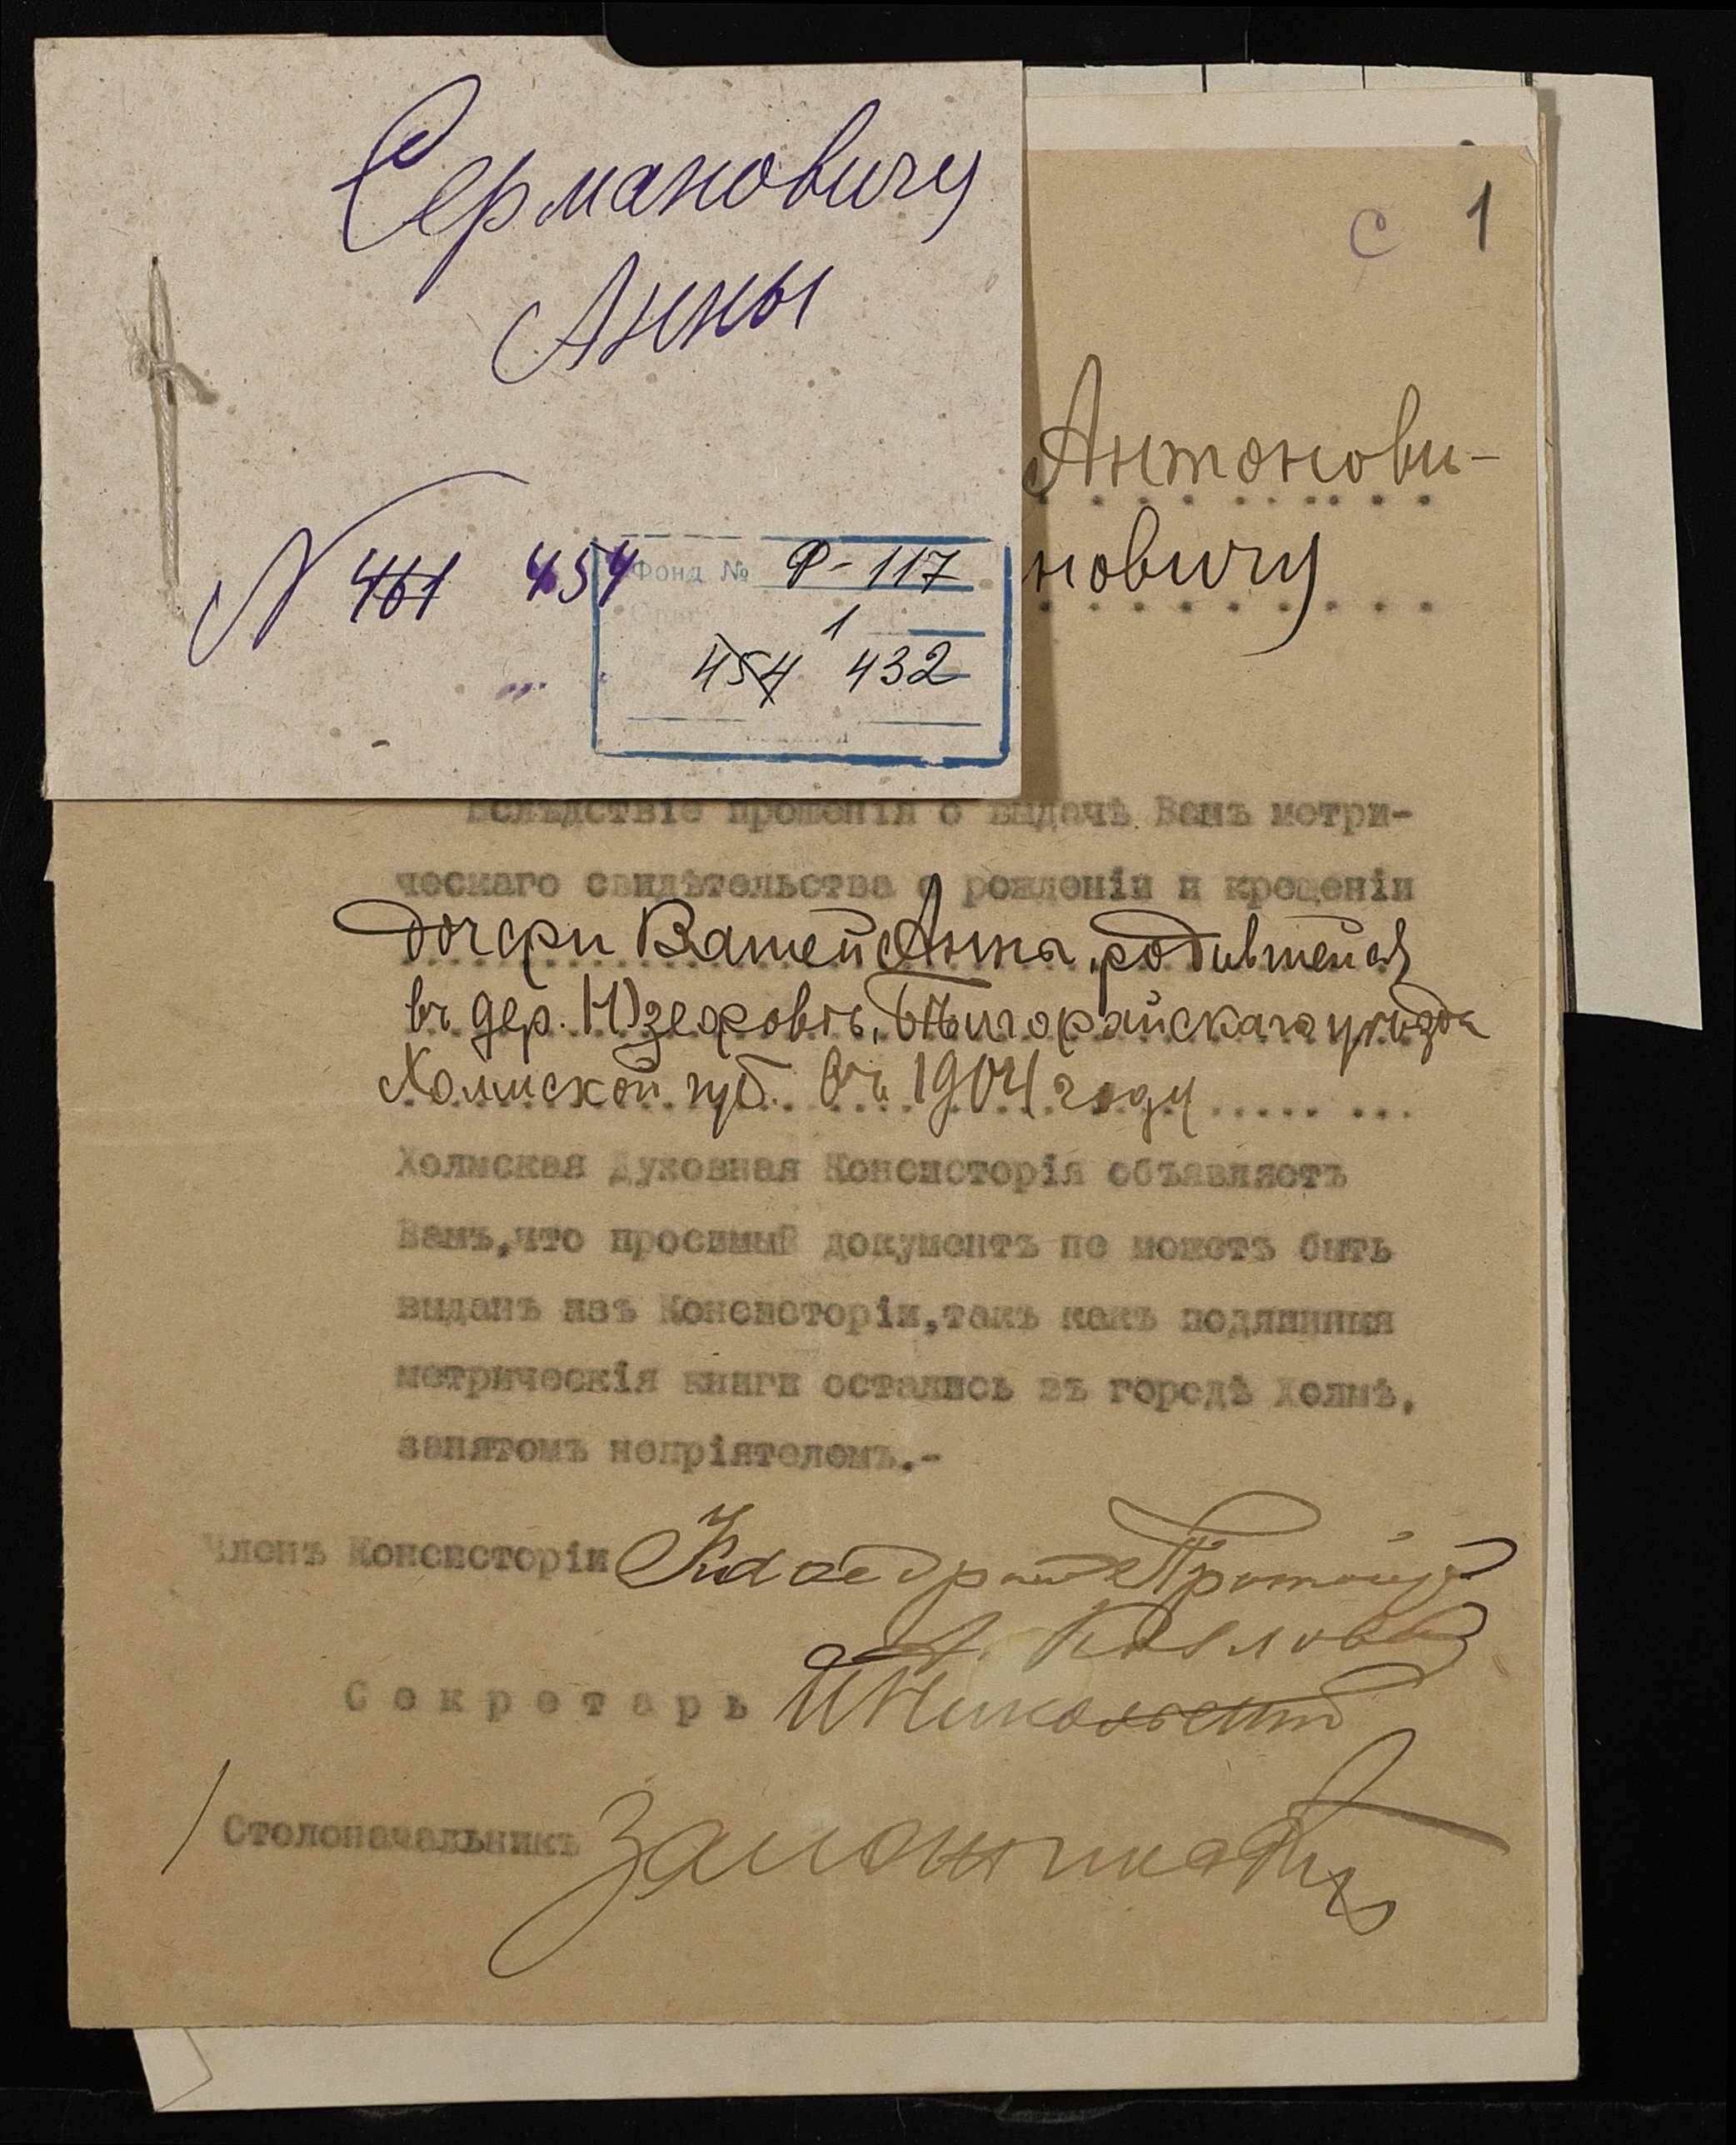 Сермановичу
Анны
N 461 454
Фонд № Ф-117
1
454 432
с 1
Антонови-
новичу
Вслѣдствіе прошенія о выдачѣ Вамъ метри-
ческаго свидѣтельства о рожденіи и крещеніи
дочери Вашей Анны, родившейся
въ дер. Юзефовѣ, Бѣлгорайскаго уѣзда
Холмской губ. въ 1904 году
Холмская Духовная Консисторія объявляетъ
Вамъ,что просимый документъ не можетъ быть
выданъ изъ Консисторіи,такъ какъ подлинныя
метрическія книги остались въ городѣ Холмѣ,
занятомъ непріятелемъ.-
Членъ Консисторіи Каѳедрал Протоіер
Секретарь Никольскій
Столоначальникъ